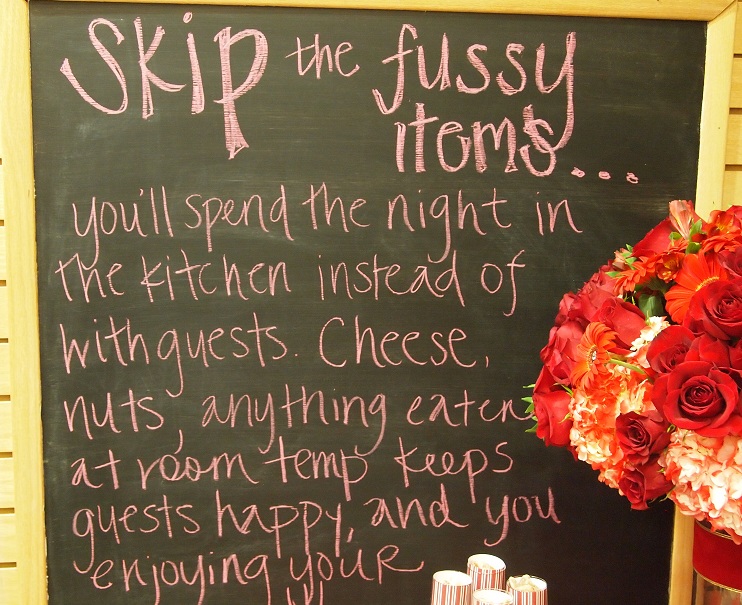 Skip the fussy
items...
you'll spend the night in
the kitchen instead of
with guests. Cheese,
nuts, anything eaten
at room temp keeps
guests happy, and you
enjoying your